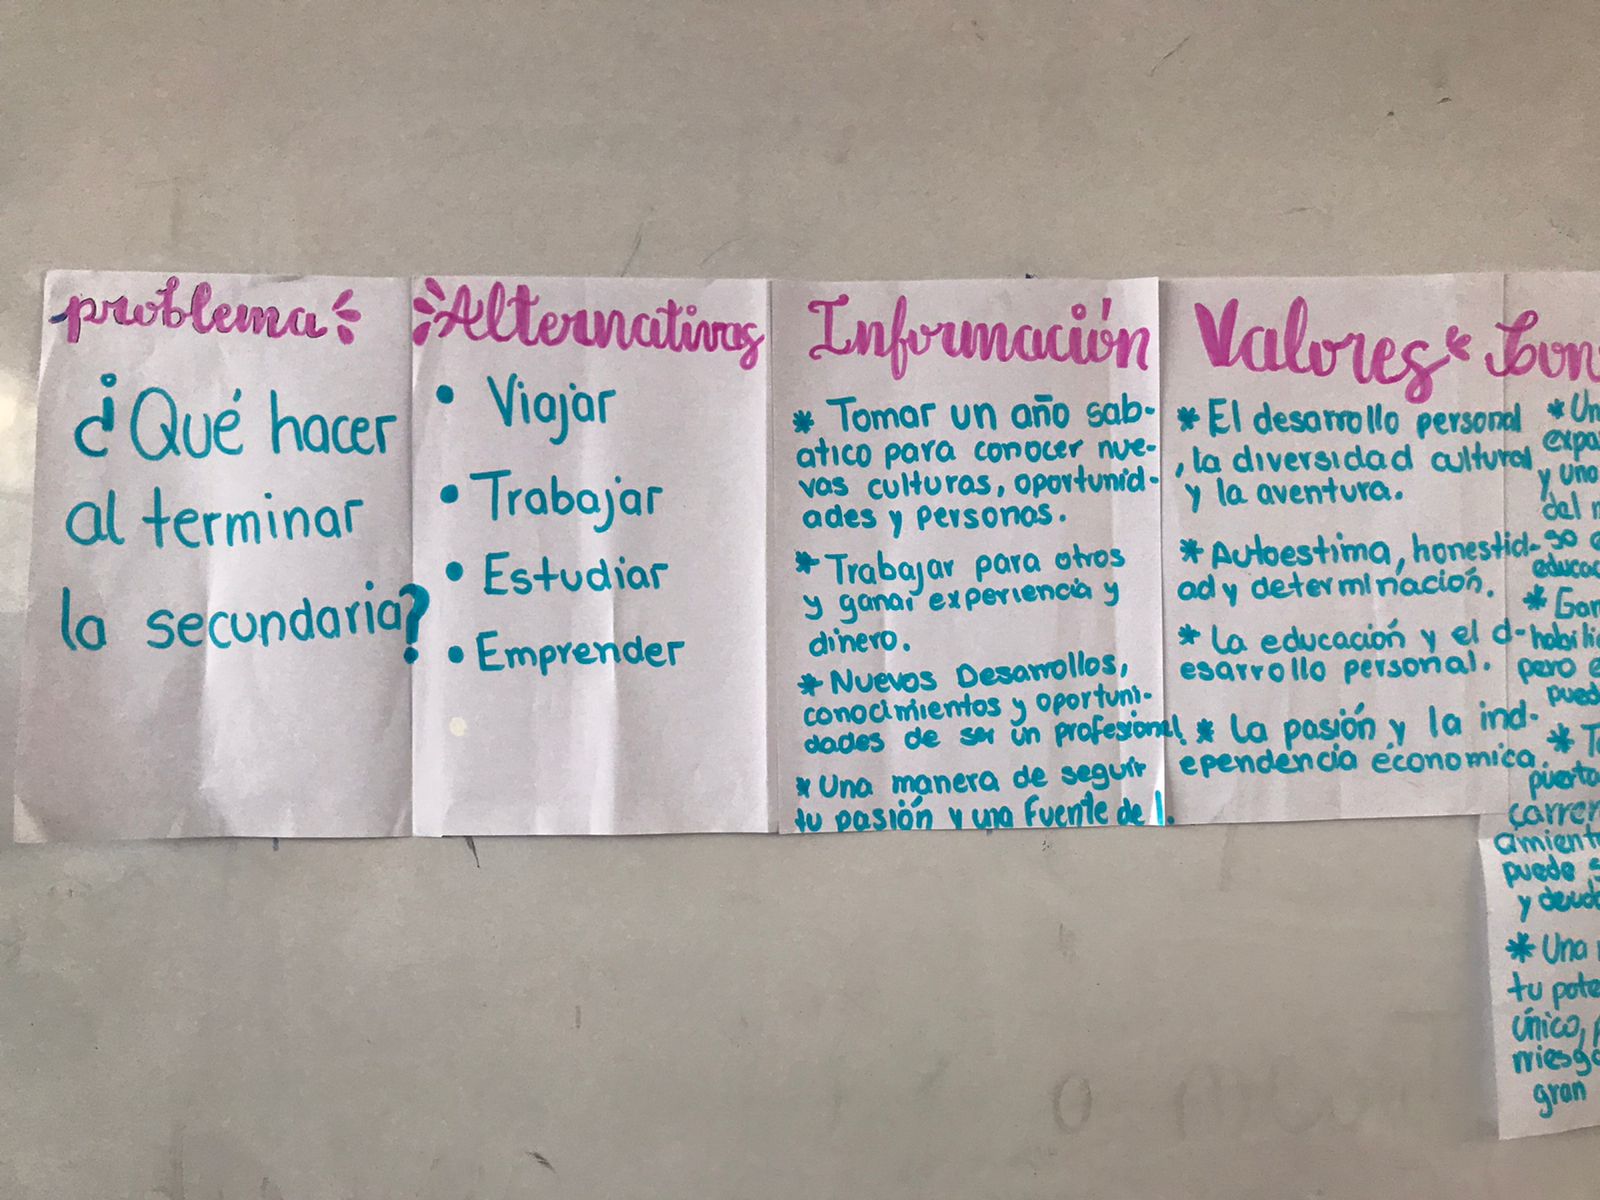 problema
¿Qué hacer
al terminar
la secundaria?
Alternativas
• Viajar
• Trabajar
• Estudiar
• Emprender
Información
* Tomar un año sab-
atico para conocer nue-
vas culturas, oportunid-
ades y personas.
* Trabajar para otros
y ganar experiencia y
dinero.
* Nuevos Desarrollos,
conocimientos y oportuni-
dades de ser un profesional
* Una manera de seguir
tu pasión y una fuente de I.
Valores
* El desarrollo personal
, la diversidad cultural
y la aventura.
* Autoestima, honestid-
ad y determinación.
* La educación y el d-
esarrollo personal.
* La pasión y la ind-
ependencia économica.
* Un
y una
so
* 
pero
* 
puede
y
* Una
tu
único,
gran